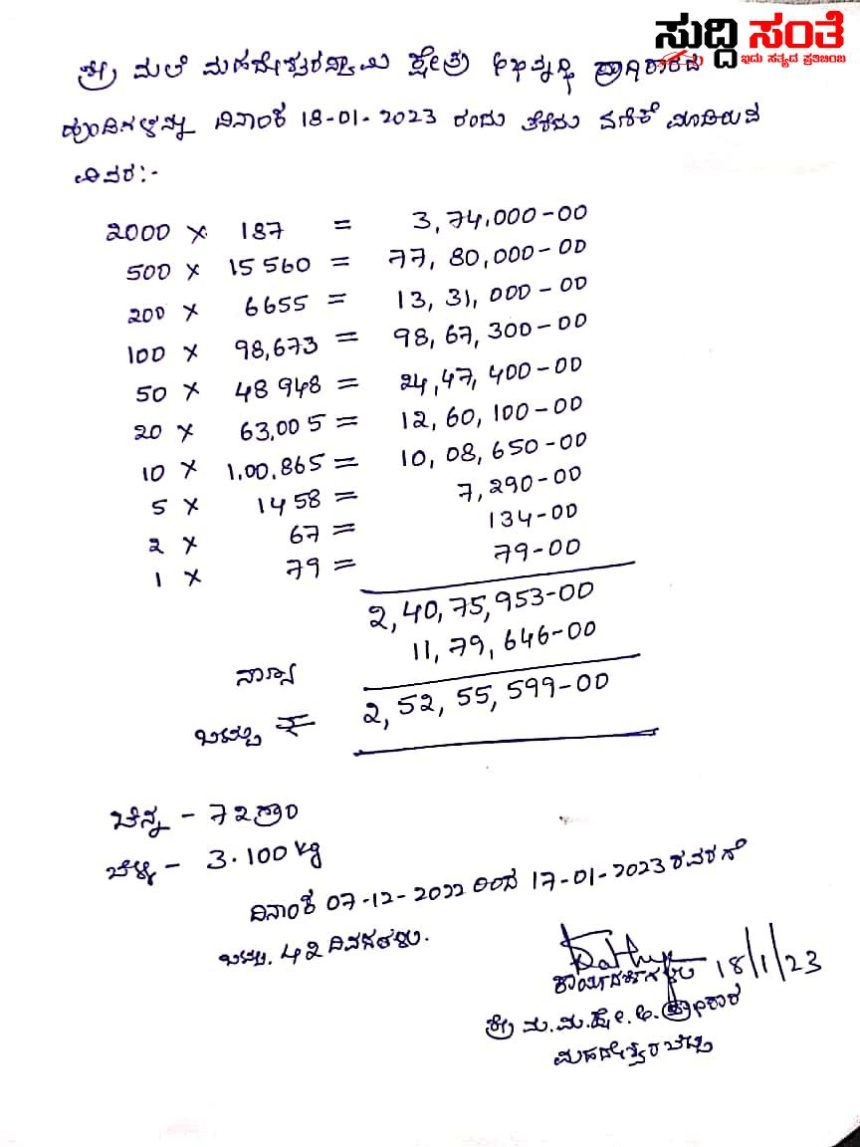 ಸುದ್ದಿ ಸಂತೆ
ಇದು ಸತ್ಯದ ಪ್ರತಿಬಿಂಬ
ಶ್ರೀ ಮಲೆ ಮಹದೇಶ್ವರಸ್ವಾಮಿ ಕ್ಷೇತ್ರ ಅಭಿವೃದ್ಧಿ ಪ್ರಾಧಿಕಾರದ
ಹುಂಡಿಗಳನ್ನು ದಿನಾಂಕ 18-01-2023 ರಂದು ತೆರೆದು ಎಣಿಕೆ ಮಾಡಿರುವ
ವಿವರ:-
2000 × 187 = 3,74,000-00
500 × 15560 = 77,80,000-00
200 × 6655 = 13,31,000-00
100 × 98,673 = 98,67,300-00
50 × 48948 = 24,47,400-00
20 × 63,005 = 12,60,100-00
10 × 1,00,865 = 10,08,650-00
5 × 1458 = 7,290-00
2 × 67 = 134-00
1 × 79 = 79-00
2,40,75,953-00
11,79,646-00
ಒಟ್ಟು ₹ 2,52,55,599-00
ಚಿನ್ನ - 72ಗ್ರಾಂ
ಬೆಳ್ಳಿ - 3.100 kg
ದಿನಾಂಕ 07-12-2022 ರಿಂದ 17-01-2023 ರವರೆಗೆ
ಒಟ್ಟು 42 ದಿವಸಗಳು.
18/1/23
ಕಾರ್ಯದರ್ಶಿಗಳು
ಶ್ರೀ ಮ.ಮ.ಕ್ಷೇ.ಅ.ಪ್ರಾಧಿಕಾರ
ಮಹದೇಶ್ವರಬೆಟ್ಟ